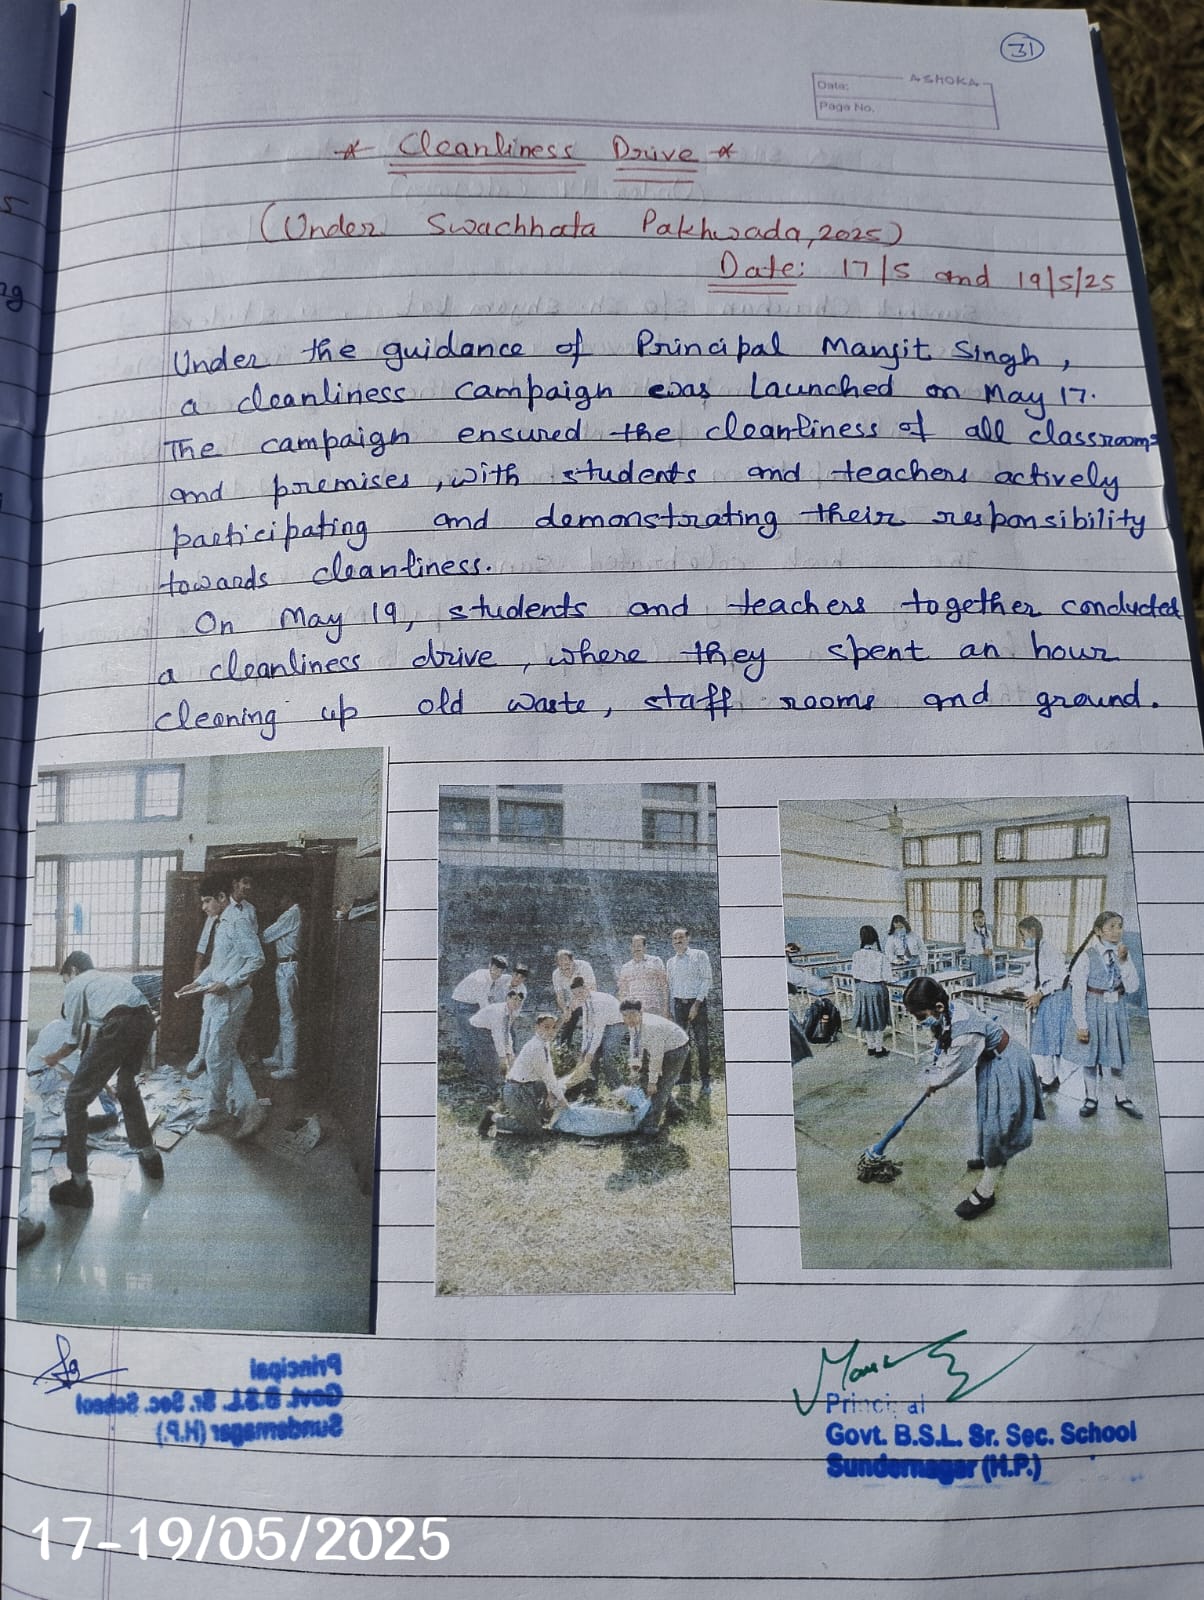 31
ASHOKA
Date:
Page No.
* Cleanliness Drive *
(Under Swachhata Pakhwada, 2025)
Date: 17/5 and 19/5/25
Under the guidance of Principal Manjit Singh,
a cleanliness campaign was launched on May 17.
The campaign ensured the cleanliness of all classrooms
and premises, with students and teachers actively
participating and demonstrating their responsibility
towards cleanliness.
On May 19, students and teachers together conducted
a cleanliness drive, where they spent an hour
cleaning up old waste, staff rooms and ground.
Principal
Govt. B.S.L. Sr. Sec. School
Sundernagar (H.P.)
Principal
Govt. B.S.L. Sr. Sec. School
Sundernagar (H.P.)
17-19/05/2025